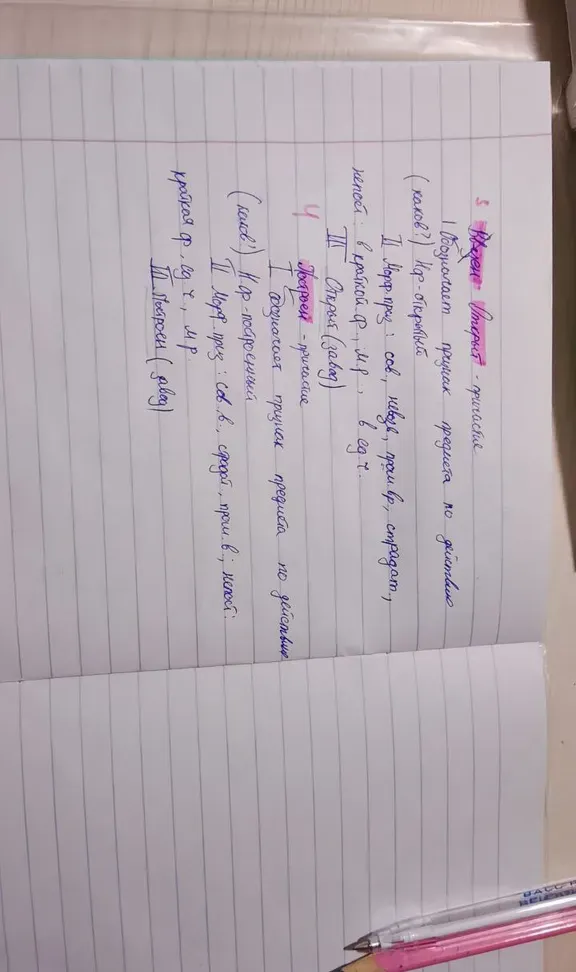 3 Открыт - причастие
I Обозначает признак предмета по действию
(каков?) Нф - открытый
II Морф. приз: сов, невозв, прош вр, страдат,
непост: в краткой ф, м.р, в ед ч.
III Открыт (завод)
4 Построен - причастие
I обозначает признак предмета по действию
(каков?) Н.ф - построенный
II Морф. приз: сов. в, страд, прош. в; непост:
краткая ф, ед ч, м.р.
III Построен (завод)
BALL P